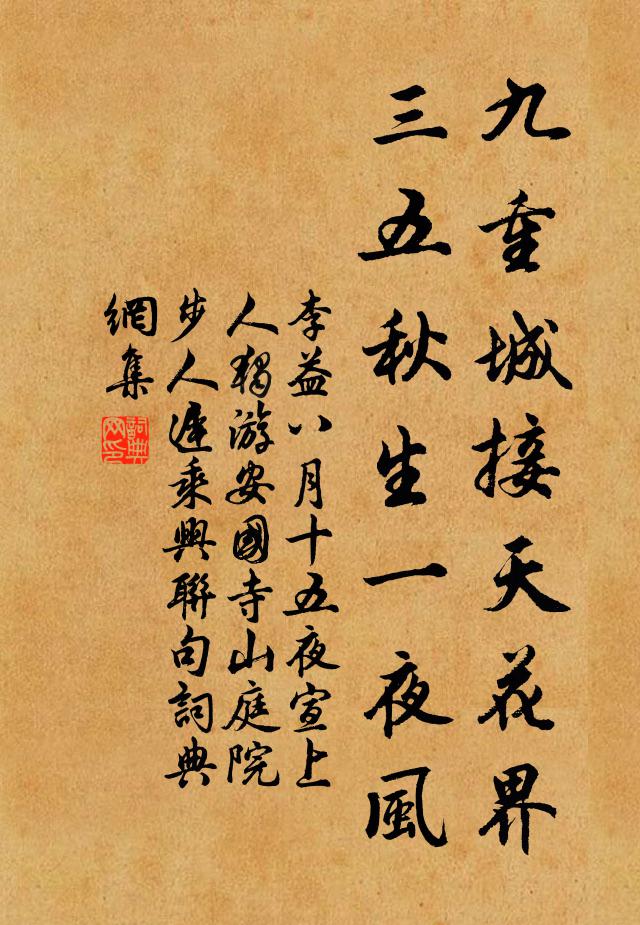 九重城接天花界
三五秋生一夜風
李益八月十五夜宣上
人獨游安國寺山庭院
步人遲乘興聯句詞典
網集
詞典
网印